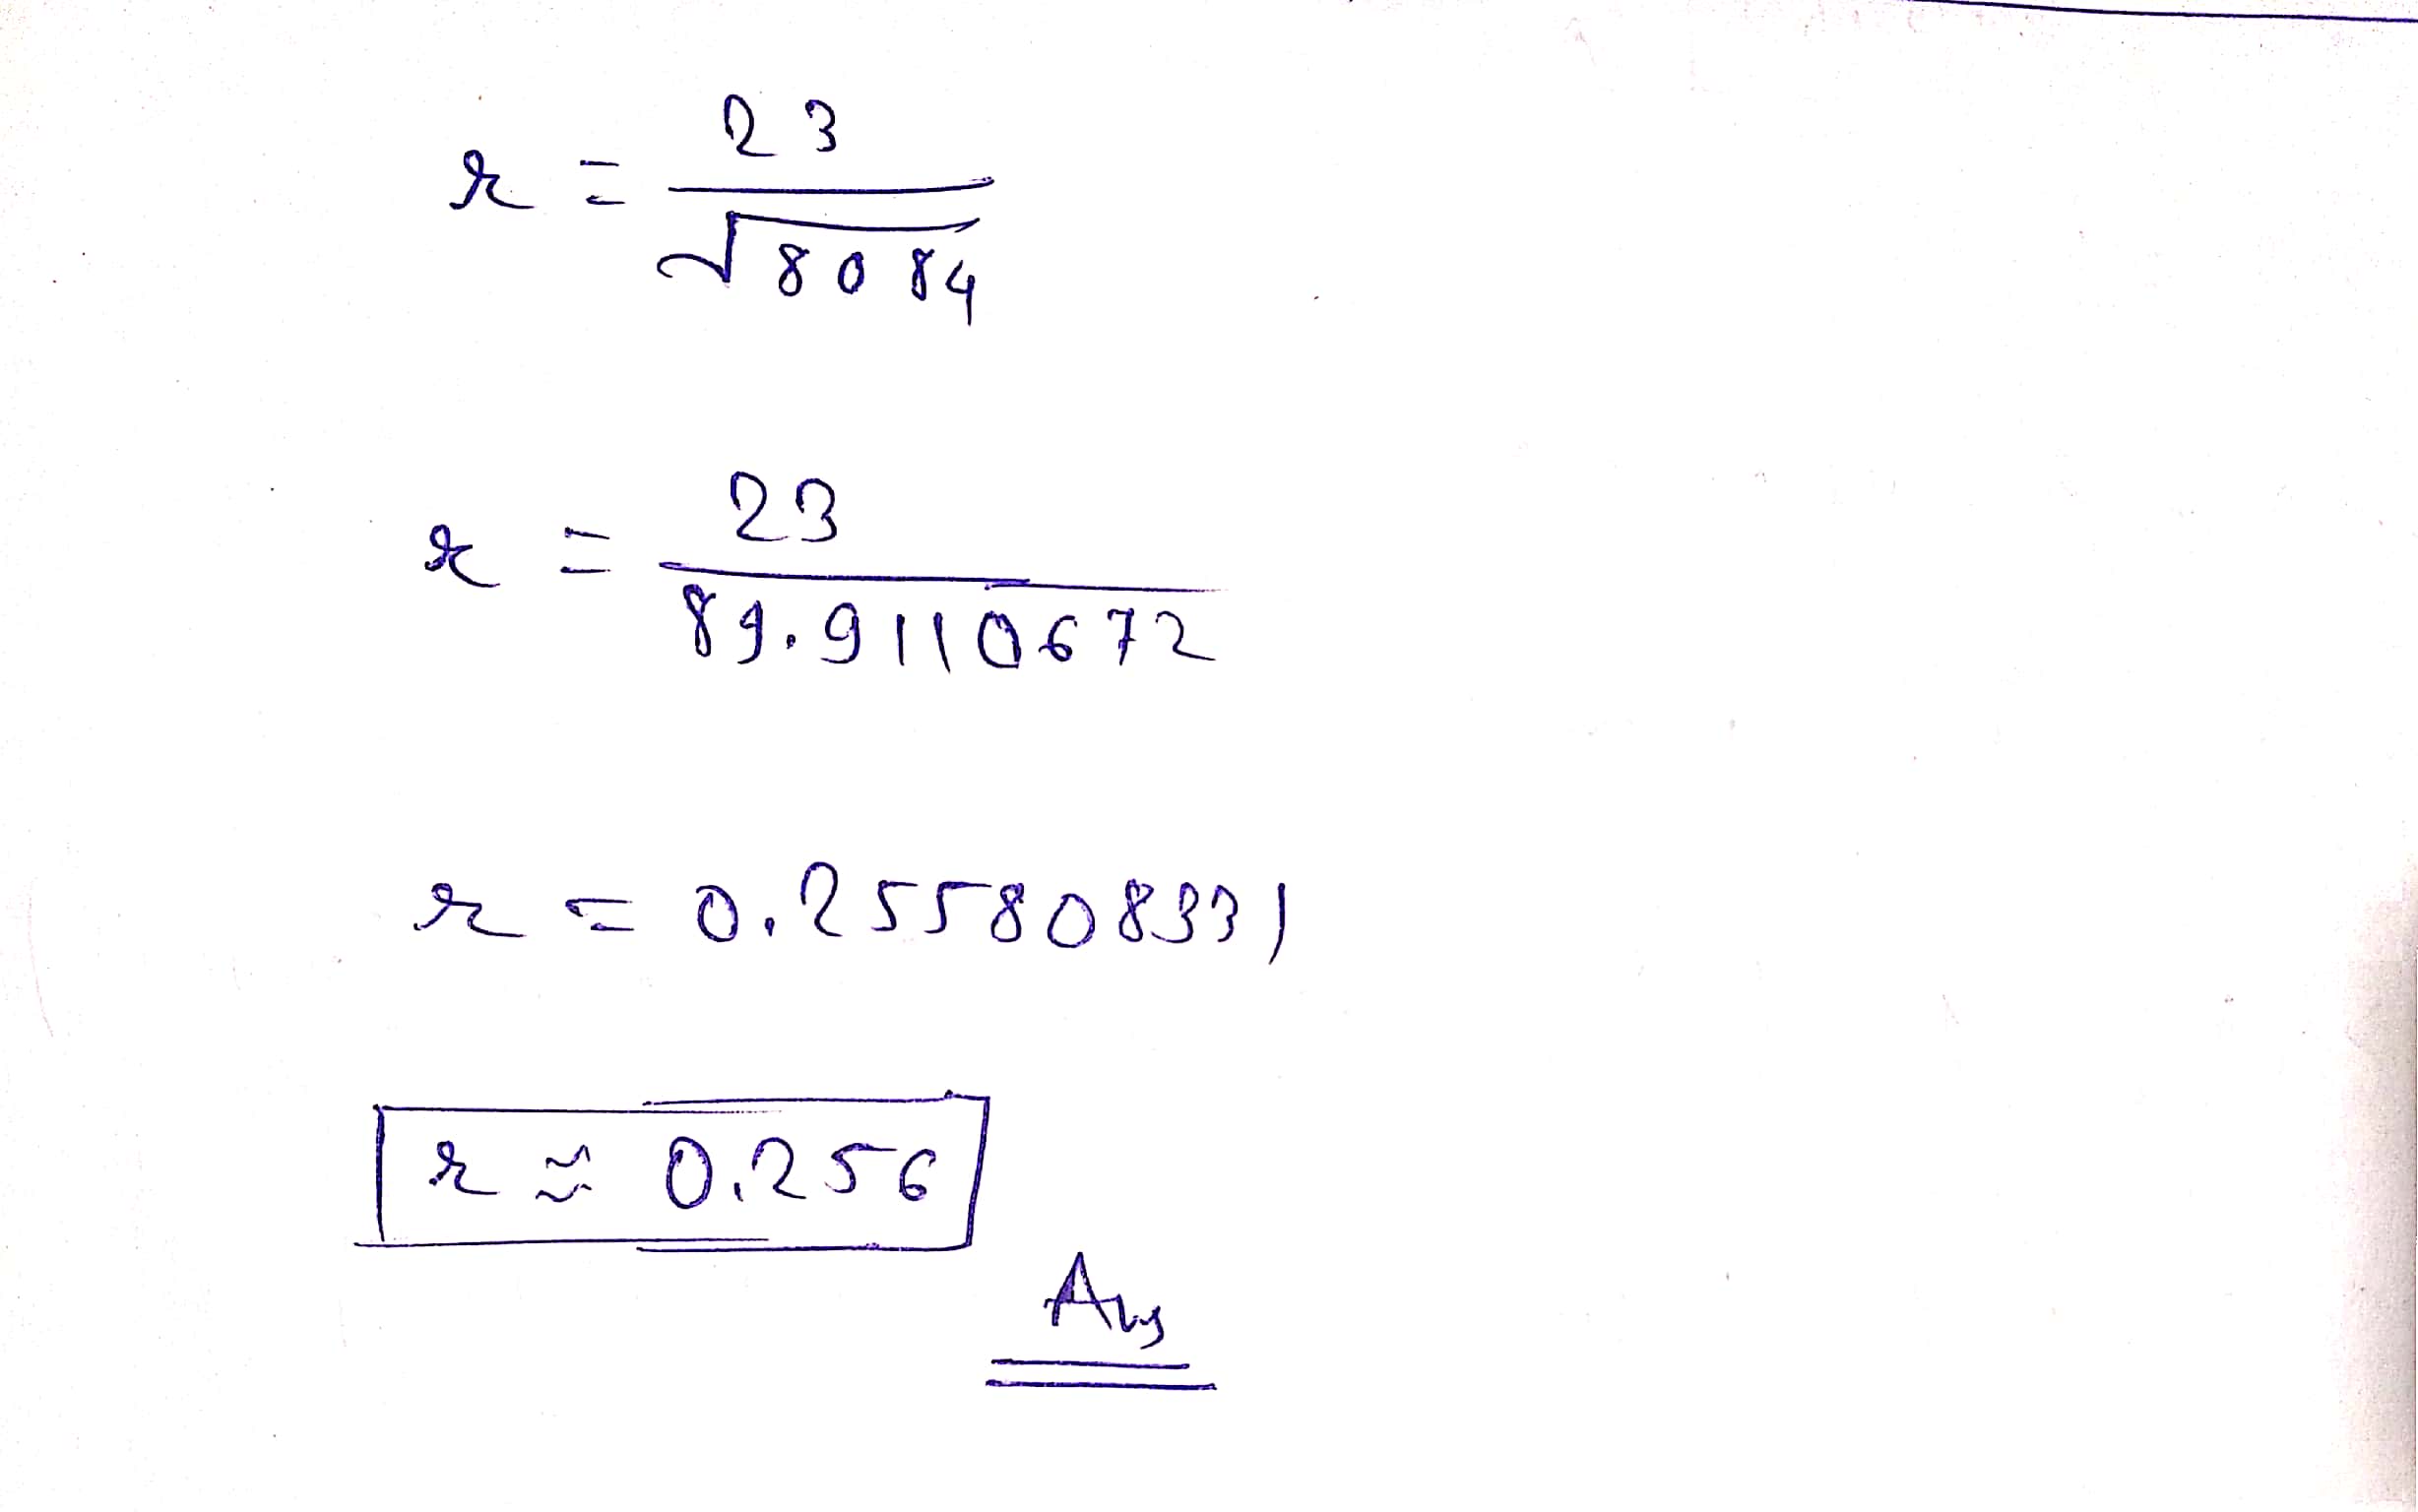 r = 23 / √8084
r = 23 / 89.9110672
r = 0.255808331
r ≈ 0.256
Ans